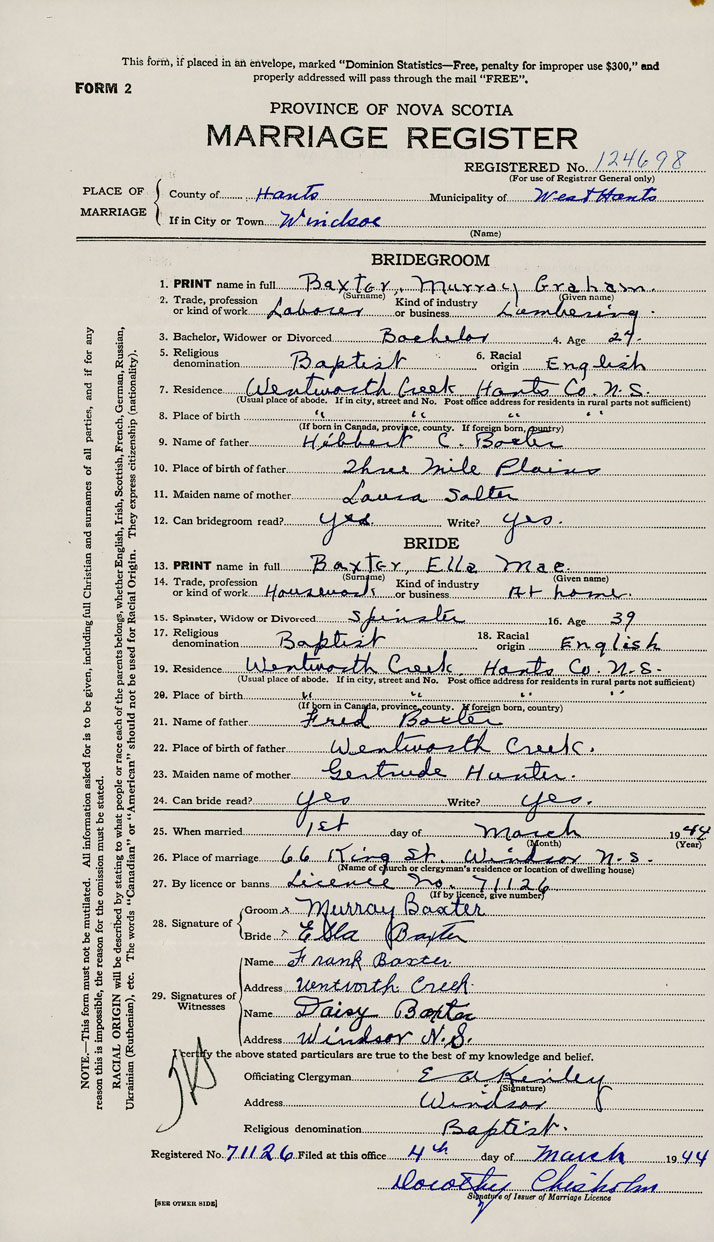 This form, if placed in an envelope, marked "Dominion Statistics—Free, penalty for improper use $300," and
properly addressed will pass through the mail "FREE".
FORM 2
PROVINCE OF NOVA SCOTIA
MARRIAGE REGISTER
REGISTERED No. 124698
(For use of Registrar General only)
PLACE OF MARRIAGE
County of Hants Municipality of West Hants
If in City or Town Windsor
(Name)
BRIDEGROOM
1. PRINT name in full Baxter, Murray Graham.
(Surname) (Given name)
2. Trade, profession or kind of work Laborer Kind of industry or business Lumbering.
3. Bachelor, Widower or Divorced Bachelor 4. Age
5. Religious denomination Baptist 6. Racial origin English
7. Residence Wentworth Creek Hants Co. N.S.
(Usual place of abode. If in city, street and No. Post office address for residents in rural parts not sufficient)
8. Place of birth " " " "
(If born in Canada, province, county. If foreign born, country)
9. Name of father Hibbert C. Baxter
10. Place of birth of father Three Mile Plains
11. Maiden name of mother Laura Salter
12. Can bridegroom read? yes. Write? yes.
BRIDE
13. PRINT name in full Baxter, Ella Mae.
(Surname) (Given name)
14. Trade, profession or kind of work Housework Kind of industry or business At home.
15. Spinster, Widow or Divorced Spinster 16. Age 39
17. Religious denomination Baptist 18. Racial origin English
19. Residence Wentworth Creek, Hants Co. N.S.
(Usual place of abode. If in city, street and No. Post office address for residents in rural parts not sufficient)
20. Place of birth " " " "
(If born in Canada, province, county. If foreign born, country)
21. Name of father Fred Baxter
22. Place of birth of father Wentworth Creek.
23. Maiden name of mother Gertrude Hunter.
24. Can bride read? yes Write? yes.
25. When married 1st day of March 1944
(Month) (Year)
26. Place of marriage 66 King St. Windsor N.S.
(Name of church or clergyman's residence or location of dwelling house)
27. By licence or banns Licence No. 71126
(If by licence, give number)
28. Signature of
Groom x Murray Baxter
Bride x Ella Baxter
29. Signatures of Witnesses
Name Frank Baxter
Address Wentworth Creek.
Name Daisy Baxter
Address Windsor N.S.
I certify the above stated particulars are true to the best of my knowledge and belief.
Officiating Clergyman E A Kinley
(Signature)
Address Windsor
Religious denomination Baptist.
Registered No. 71126 Filed at this office 4th day of March 1944
Dorothy Chisholm
Signature of Issuer of Marriage Licence
[SEE OTHER SIDE]
NOTE.—This form must not be mutilated. All information asked for is to be given, including full Christian and surnames of all parties, and if for any
reason this is impossible, the reason for the omission must be stated.
RACIAL ORIGIN will be described by stating to what people or race each of the parents belongs, whether English, Irish, Scottish, French, German, Russian,
Ukrainian (Ruthenian), etc. The words "Canadian" or "American" should not be used for Racial Origin. They express citizenship (nationality).